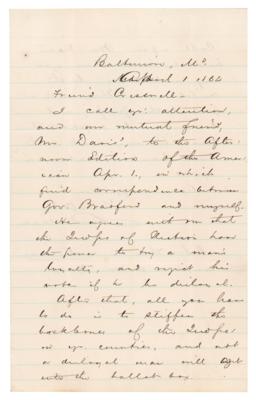 Baltimore, Md.
April 1 1864
Friend Creswell-
I call yr. attention,
and our mutual friend,
Mr. Davis', to the After-
noon Edition of the Amer-
ican Apr. 1., in which
find correspondence between
Gov. Bradford and myself.
He agrees with me that
the Judges of Election have
the power to try a man's
loyalty, and reject his
vote if he be disloyal.
After that, all you have
to do is to stiffen the
backbones of the Judges
in yr. counties, and not
a disloyal man will get
into the ballot box.